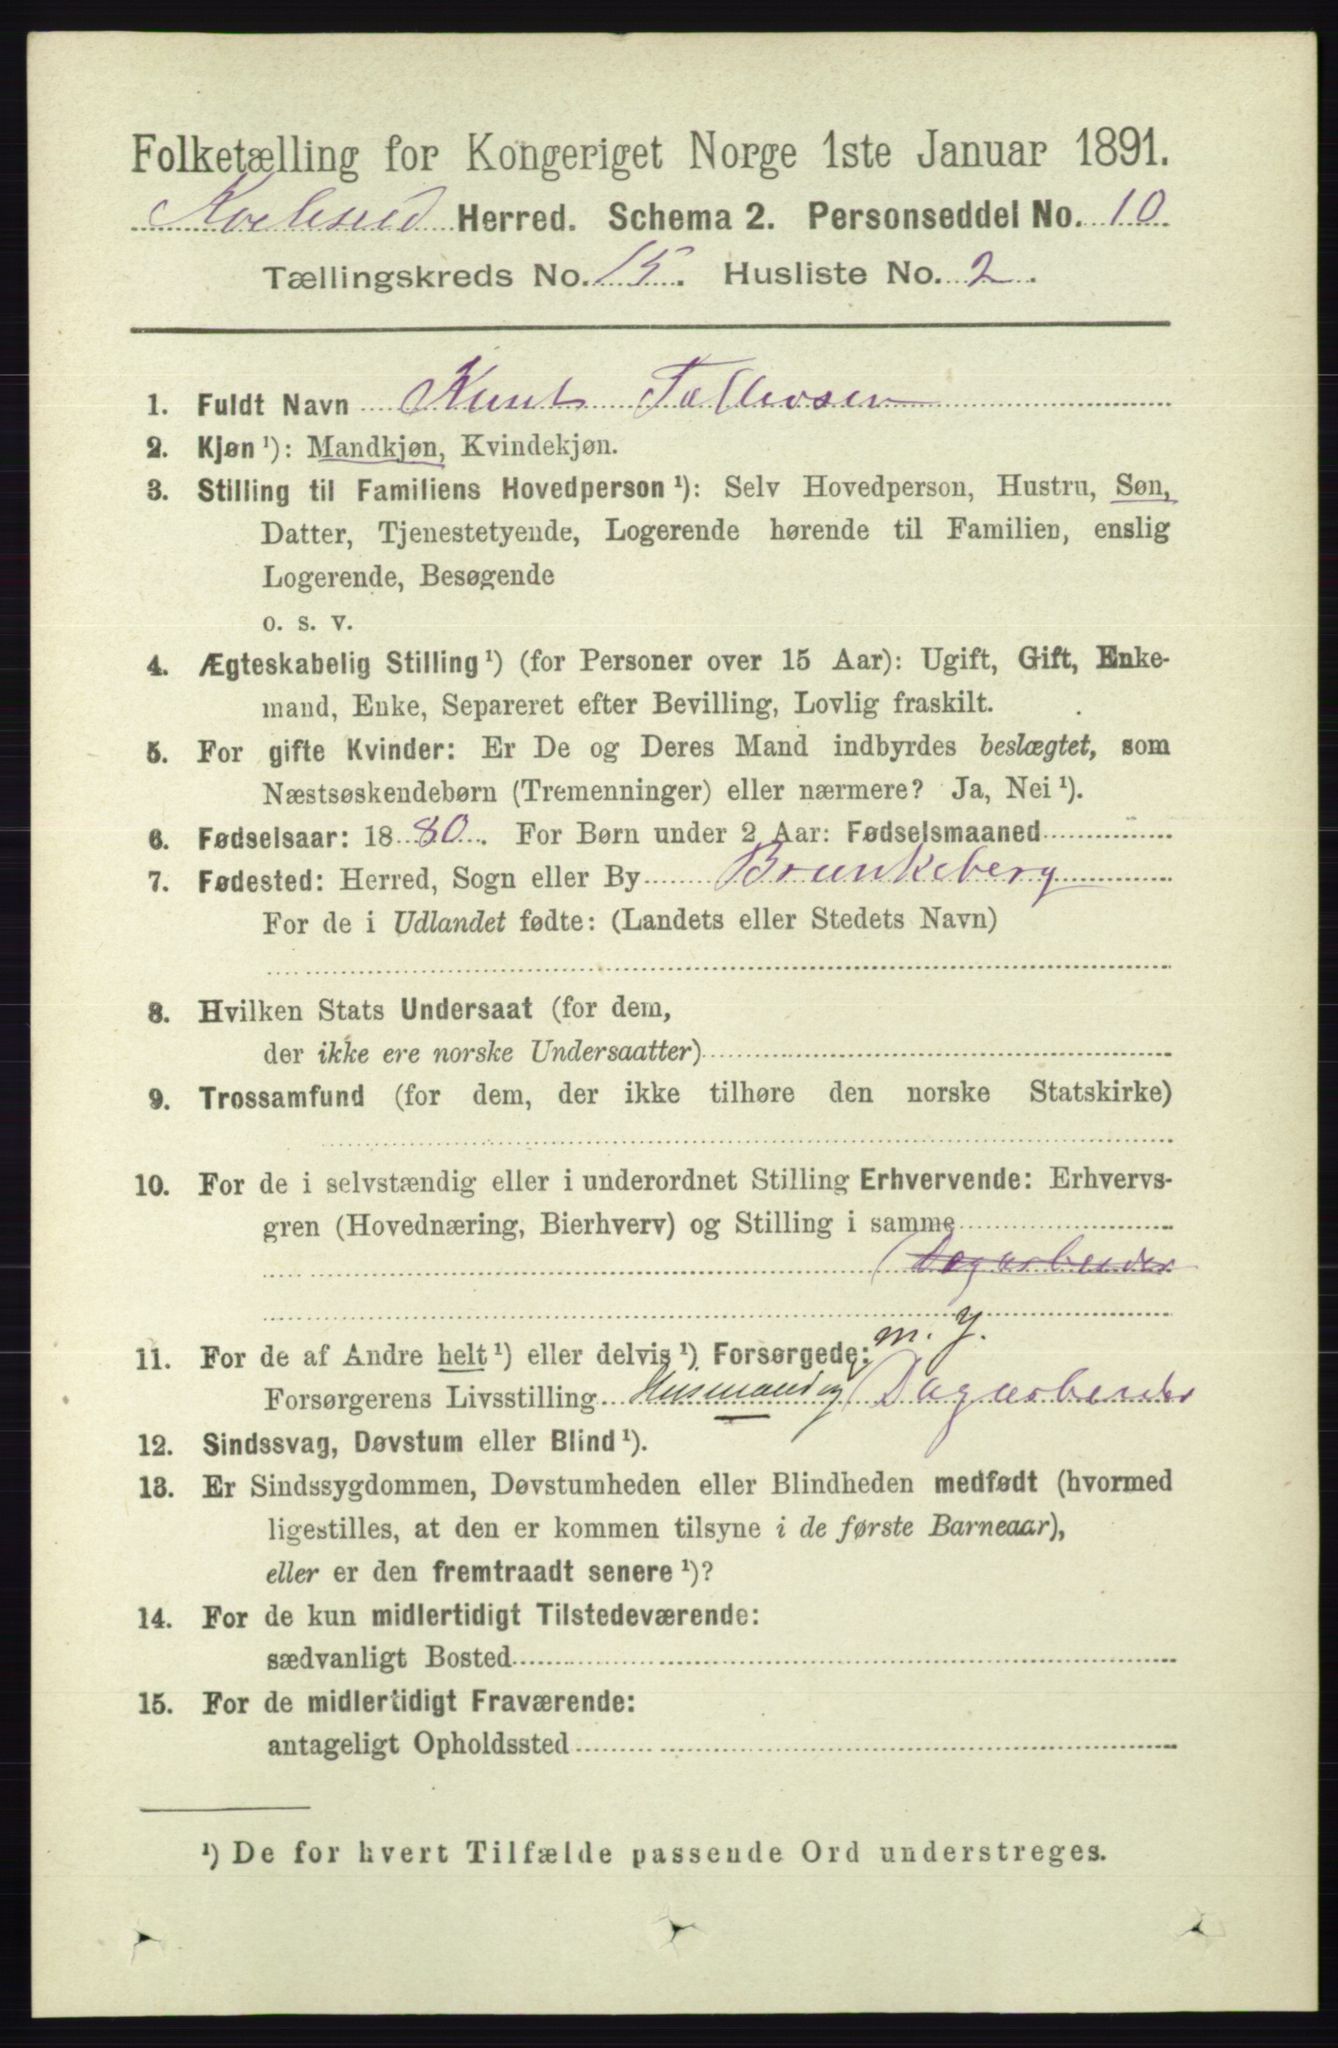 Folketælling for Kongeriget Norge 1ste Januar 1891.
Kviteseid Herred. Schema 2. Personseddel No. 10
Tællingskreds No. 15. Husliste No. 2.
1. Fuldt Navn Knut Tallevsen
2. Kjøn ¹): Mandkjøn, Kvindekjøn.
3. Stilling til Familiens Hovedperson ¹): Selv Hovedperson, Hustru, Søn,
Datter, Tjenestetyende, Logerende hørende til Familien, enslig
Logerende, Besøgende
o. s. v.
4. Ægteskabelig Stilling ¹) (for Personer over 15 Aar): Ugift, Gift, Enke-
mand, Enke, Separeret efter Bevilling, Lovlig fraskilt.
5. For gifte Kvinder: Er De og Deres Mand indbyrdes beslægtet, som
Næstsøskendebørn (Tremenninger) eller nærmere? Ja, Nei ¹).
6. Fødselsaar: 1880. For Børn under 2 Aar: Fødselsmaaned
7. Fødested: Herred, Sogn eller By Brunkeberg
For de i Udlandet fødte: (Landets eller Stedets Navn)
8. Hvilken Stats Undersaat (for dem,
der ikke ere norske Undersaatter)
9. Trossamfund (for dem, der ikke tilhøre den norske Statskirke)
10. For de i selvstændig eller i underordnet Stilling Erhvervende: Erhvervs-
gren (Hovednæring, Bierhverv) og Stilling i samme
(Dagarbeider
m. J.
11. For de af Andre helt ¹) eller delvis ¹) Forsørgede:
Forsørgerens Livsstilling Husmand og (Dagarbeider
12. Sindssvag, Døvstum eller Blind ¹).
13. Er Sindssygdommen, Døvstumheden eller Blindheden medfødt (hvormed
ligestilles, at den er kommen tilsyne i de første Barneaar),
eller er den fremtraadt senere ¹)?
14. For de kun midlertidigt Tilstedeværende:
sædvanligt Bosted
15. For de midlertidigt Fraværende:
antageligt Opholdssted
¹) De for hvert Tilfælde passende Ord understreges.